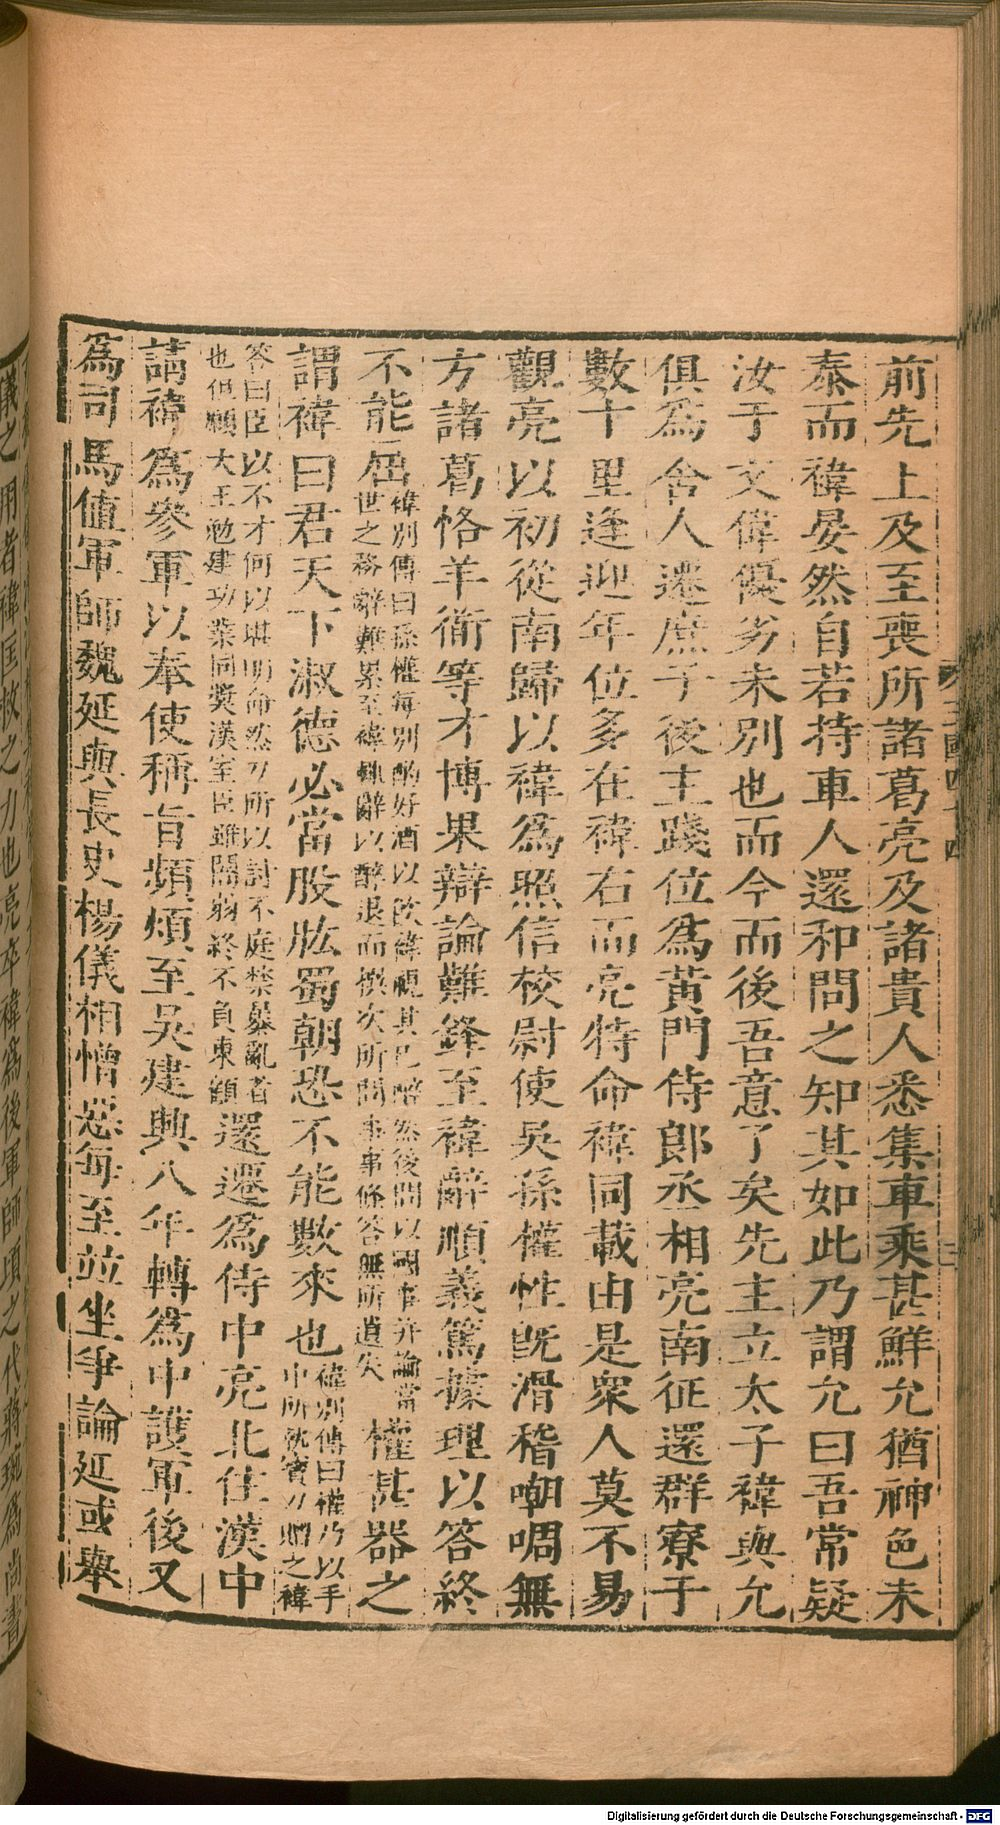 前先上及至喪所諸葛亮及諸貴人悉集車乘甚鮮允猶神色未
泰而禕晏然自若持車人還和問之知其如此乃謂允曰吾常疑
汝于文偉優劣未別也而今而後吾意了矣先主立太子禕與允
俱爲舍人遷庶子後主踐位爲黃門侍郎丞相亮南征還群寮于
數十里逢迎年位多在禕右而亮特命禕同載由是衆人莫不易
觀亮以初從南歸以禕爲照信校尉使吳孫權性旣滑稽嘲啁無
方諸葛恪羊衜等才博果辯論難鋒至禕辭順義篤據理以答終
不能屈禕別傳曰孫權每別酌好酒以飲禕視其已醉然後問以國事并論當
世之務辭難累至禕輒辭以醉退而撰次所問事事條答無所遺失權甚器之
謂禕曰君天下淑德必當股肱蜀朝恐不能數來也禕別傳曰權乃以手
中所執寶刀贈之禕
答曰臣以不才何以堪明命然刀所以討不庭禁暴亂者
也但願大王勉建功業同獎漢室臣雖闇弱終不負東顧還遷爲侍中亮北住漢中
請禕爲參軍以奉使稱旨頻煩至吳建興八年轉爲中護軍後又
爲司馬値軍師魏延與長史楊儀相憎惡每至並坐爭論延或舉
儀之用者禕匡救之力也亮卒禕爲後軍師頃之代蔣琬爲尚書
Digitalisierung gefördert durch die Deutsche Forschungsgemeinschaft - DFG